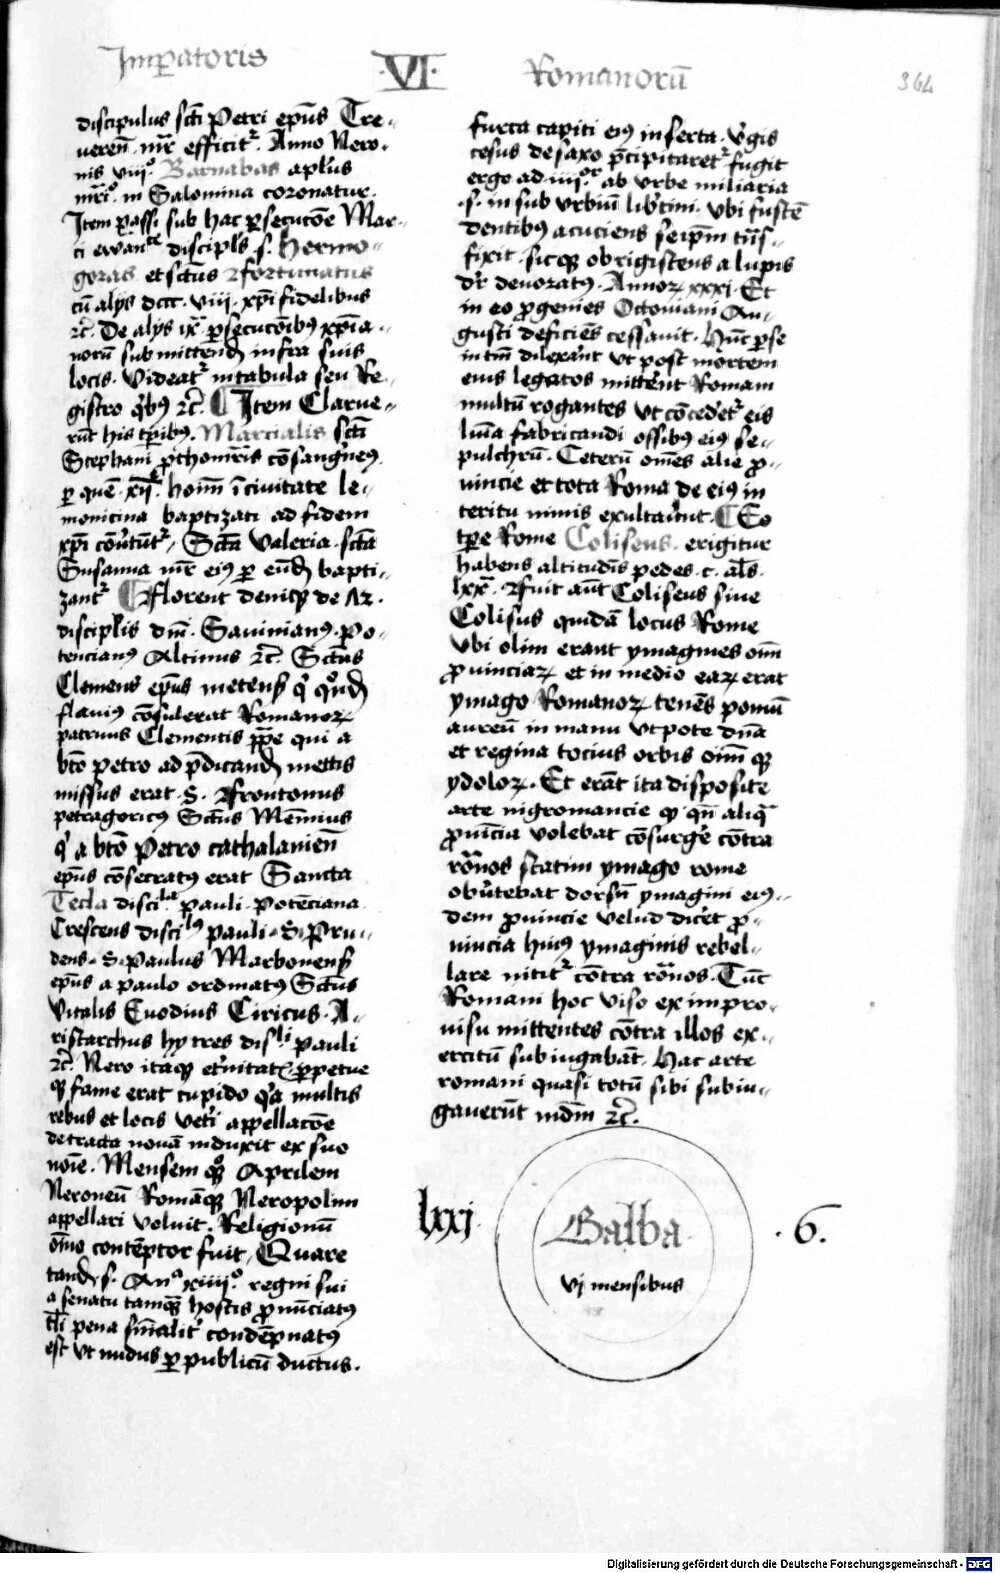 Imꝑatoris ·VI· Romanorū 364
discipulus scti Petri epūs Tre-
ueren̄ mr̄ efficit᷑. Anno Nero-
nis viij.º Barnabas apl̄us
mr̄iº in Salomina coronatur.
Item pass. sub hac ꝑsecucōe Mar-
ci ewan̄te discipl̄s s. Hermo-
goras et sctūs Fortunatus
cū alijs dccc. viij. xp̄i fidelibus
⁊c̄. De alijs ix ꝑsecucōibꝰ xp̄ia-
norū submittend̄ infra suis
locis. Videat᷑ in tabula seu Re-
gistro qͥbꝰ ⁊c̄. ¶ Item Clarue-
rūt his tp̄ibꝰ. Martialis scti
Stephani ꝓthomr̄is cōsangͥneꝰ
ꝑ quē xxij. hoīm ī ciuitate le-
monicina baptizati ad fidem
xp̄i cōuūt᷑. Sctā Valeria. sctā
Susanna mr̄ eiꝰ ꝑ eūd̄ bapti-
zant᷑ ¶ Florent deniqꝫ de lxx.
discipl̄is dn̄i. Sauinianꝰ. Po-
tencianꝰ Altinus ⁊c̄. Sctūs
Clemens epūs metens̄ qͥ qᷓnd̄
flauiꝰ cōsulerat Romanoꝝ
patruus Clementis pp̄e qui a
bt̄o petro ad p̄dicand̄ mettis
missus erat. S. Frontonius
petragoricꝰ Sctūs Mēmius
qͥ a bt̄o Petro cathalanien̄
epūs cōsecratꝰ erat Sancta
Tecla disci.la pauli. Potēciana
Crescens disci.lus pauli. S. Pru-
dens. S. Paulus Narbonens̄
epūs a paulo ordinatꝰ Sctūs
Vitalis Euodius Ciricus. A-
ristarchus hy tres dis.li pauli
⁊c̄. Nero itaqꝫ et̄nitatꝭ ꝑpetue
qꝫ fame erat cupido qͥa multis
rebus et locis vet̄i appellacōe
detracta nouā induxit ex suo
noīe. Mensem qꝫ Aprilem
Neroneū Romāqꝫ Neropolim
appellari voluit. Religionū
om̄io contēptor fuit. Quare
tand̄ s. Anº xiiij.º regni sui
a senatu tamqᷓ hostis ꝓnūciatꝰ
tl̄i pena sn̄ialit᷑ condēpnatꝰ
est vt nudus ꝑ publicū ductus.
furca capiti eiꝰ inserta. v̄gis
cesus de saxo p̄cipitaret᷑ fugit
ergo ad iiij.or ab vrbe miliaria
.s. in suburbiū lib̄tini. vbi fustē
dentibꝰ acuciens seip̄m tn̄s-
fixit. sicqꝫ obrigistens a lupis
dr̄ deuoratꝰ. Annoꝝ xxxi. Et
in eo ꝓgenies Octouiani Au-
gusti deficiēs cessauit. Hūc ꝑse
in tm̄ dilexāt vt post mortem
eius legatos mitt̄ent Romam
multū rogantes vt cōcedet᷑ eis
līna fabricandi ossibꝰ eiꝰ se-
pulchrū. Ceterū om̄es alie ꝓ-
uincie et tota Roma de eiꝰ in
teritu nimis exultaūnt. ¶ Eo
tp̄e Rome Coliseus erigitur
habens altitudīs pedes. c. al̄s.
lxx. Fuit aūt Coliseus siue
Colisus quidā locus Rome
vbi olim erant ymagines oīm
ꝓuinciaꝝ et in medio eaꝝ erat
ymago Romanoꝝ tenēs pomū
aureū in manu vtpote dn̄a
et regina tocius orbis oīm qꝫ
ydoloꝝ. Et erāt ita disposite
arte nigromancie qꝙ qn̄ aliqᷓ
ꝓuīcia volebat cōsurḡe cōtra
rōnos statim ymago rome
obūtebat dorsū ymagini eiꝰ-
dem ꝓuincie velud dic̄et ꝓ-
uincia huiꝰ ymaginis rebel-
lare nitit᷑ cōtra rōnos. Tūc
Romani hoc viso ex impro-
uisu mittentes cōtra illos ex-
ercitū subiugabāt. Hac arte
romani quasi totū sibi subiu-
gauerūt mūdm̄ ⁊c̄.
lxxj. Galba .6.
vj mensibus
Digitalisierung gefördert durch die Deutsche Forschungsgemeinschaft - DFG